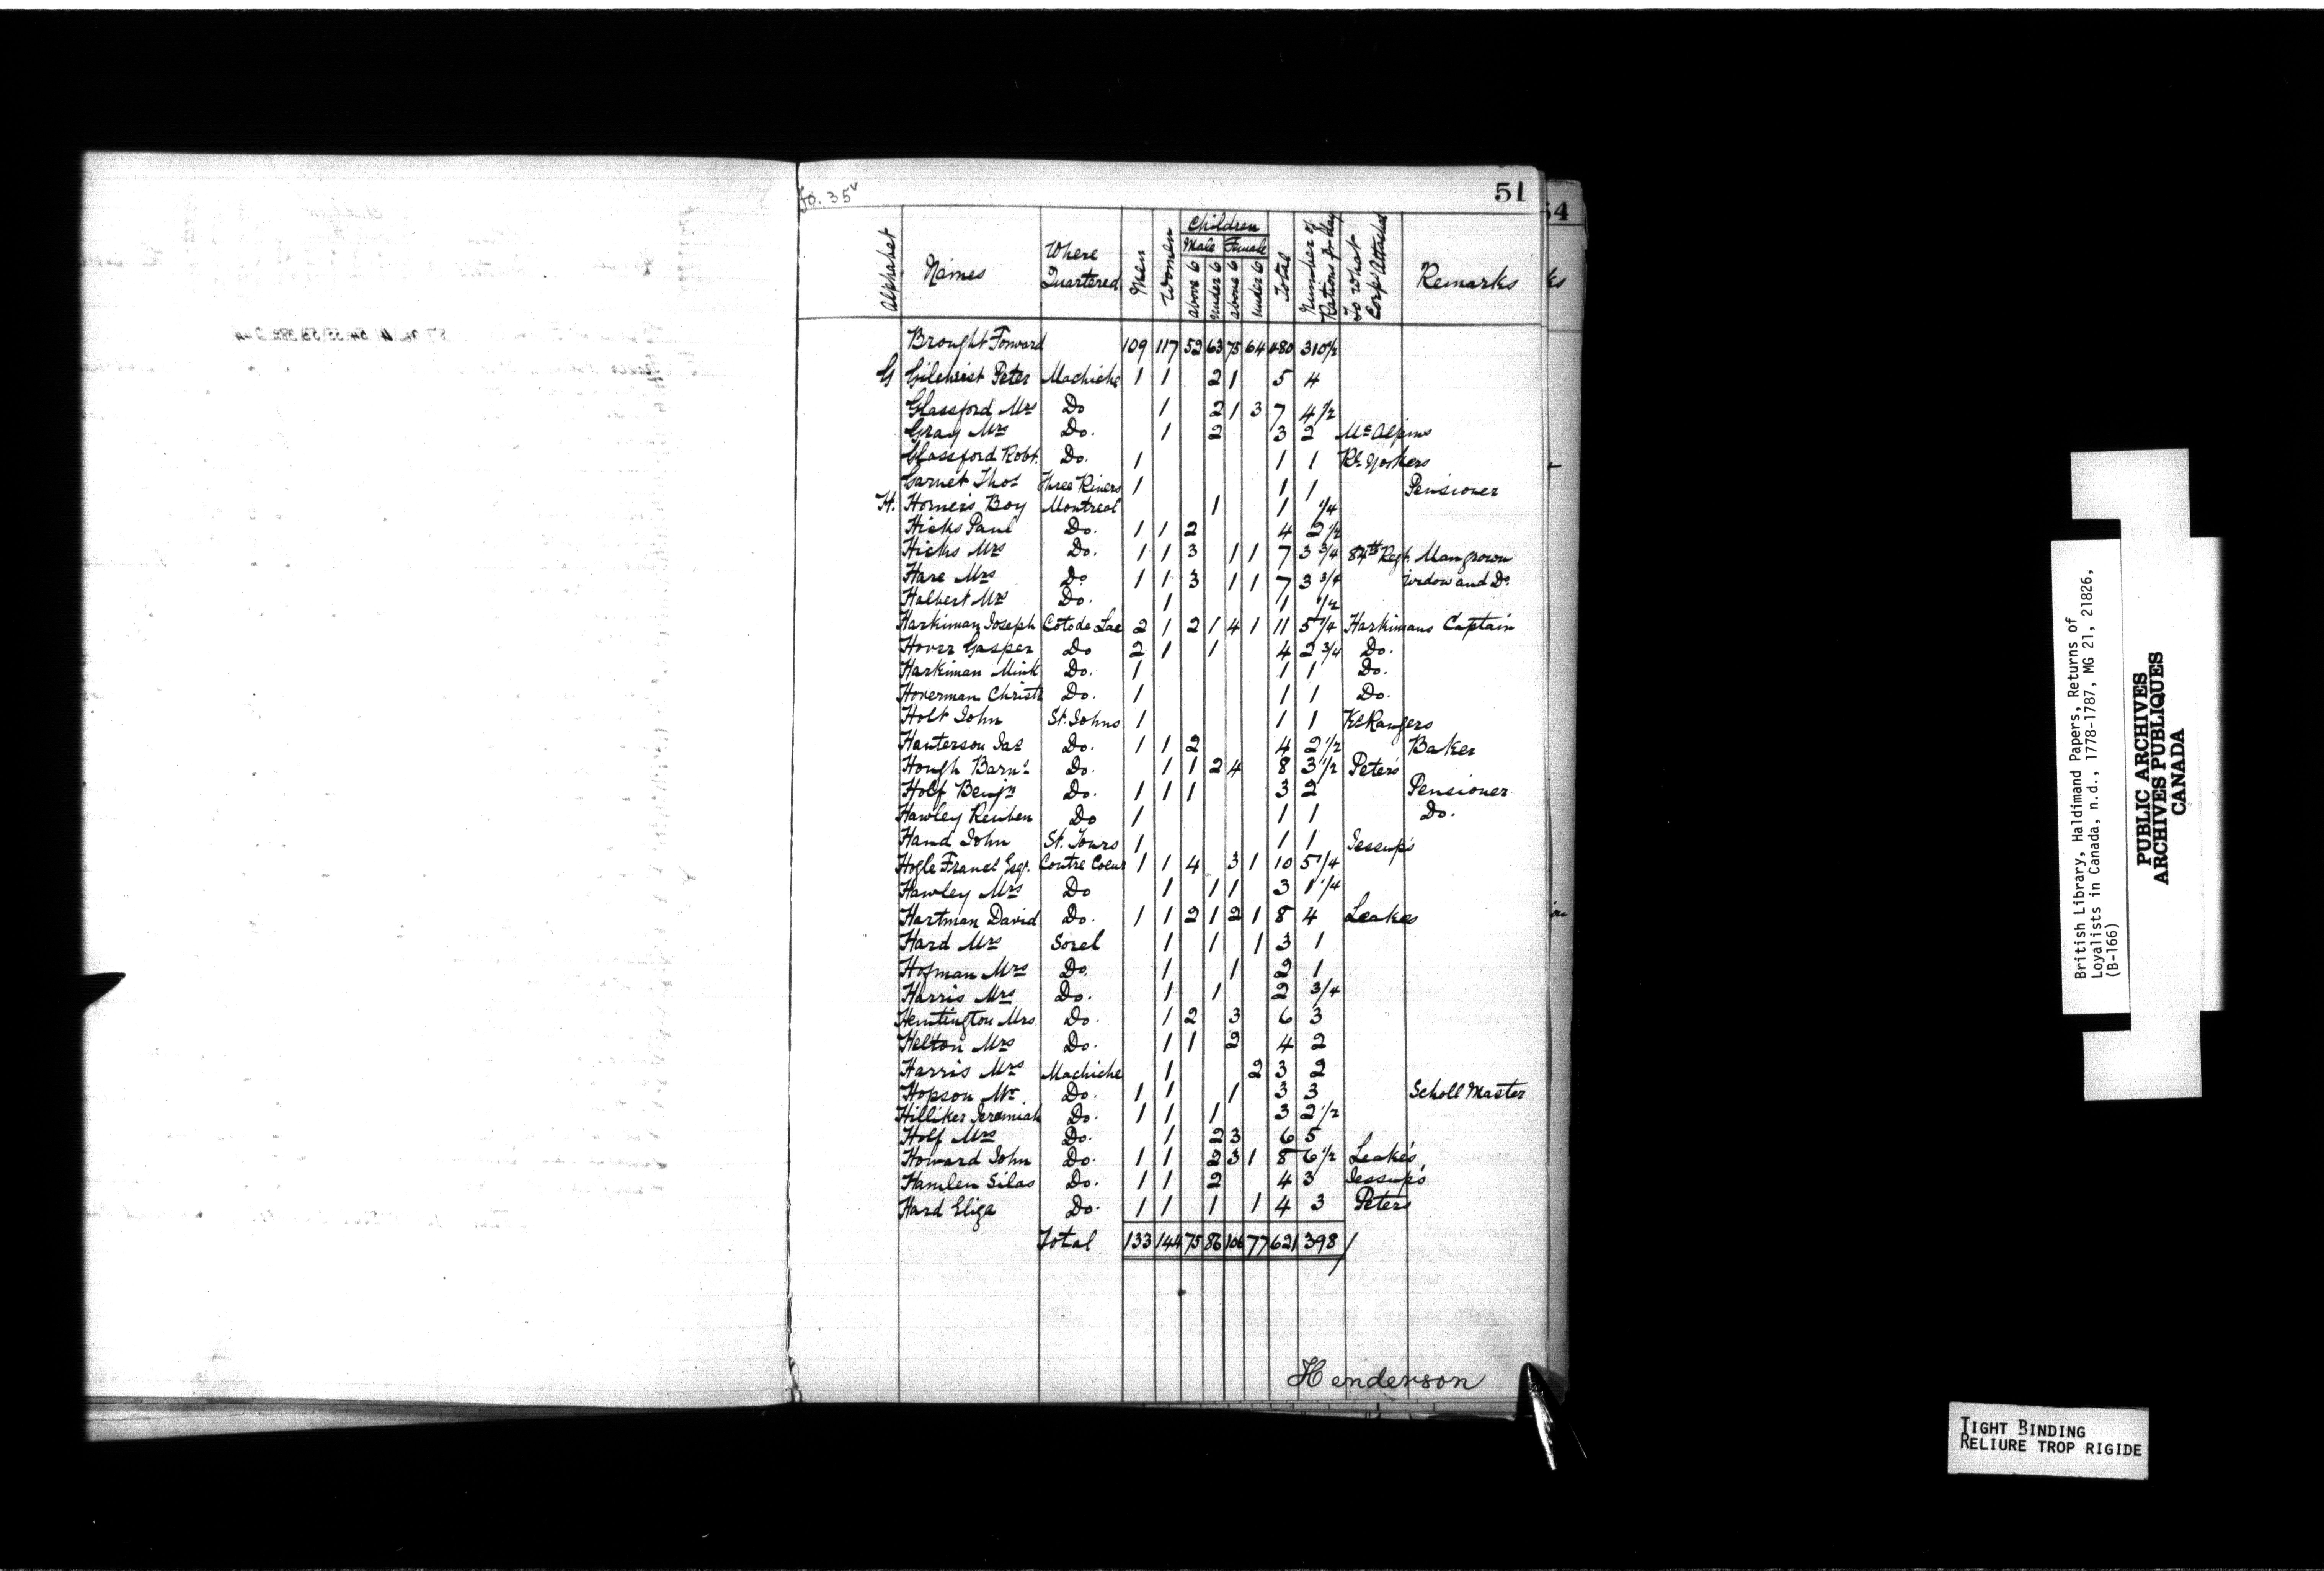 fo. 35v
51
54
Alphabet Names Where Quartered Men Women Children Male above 6 under 6 Female above 6 under 6 Total Number of Rations pr day To What Corps Attached Remarks
Brought Forward 109 117 52 63 75 64 480 310 1/2
G Gilchrist Peter Machiche 1 1 2 1 5 4
Glassford Mrs Do 1 2 1 3 7 4 1/2
Gray Mrs Do. 1 2 3 2 McAlpins
Glassford Robt. Do. 1 1 1 Rl. Yorkers
Garnet Thos Three Rivers 1 1 1 Pensioner
H. Horneis Boy Montreal 1 1 1/4
Hicks Paul Do. 1 1 2 4 2 1/2
Hicks Mrs Do. 1 1 3 1 1 7 3 3/4 84th Regt. Man grown
Hare Mrs Do 1 1 3 1 1 7 3 3/4 Widow and Do.
Halbert Mrs Do. 1 1 1/2
Harkiman Joseph Coto de Lac 2 1 2 1 4 1 11 5 1/4 Harkimans Captain
Hover Gasper Do 2 1 1 4 2 3/4 Do.
Harkiman Mink Do. 1 1 1 Do.
Hoverman Christn Do. 1 1 1 Do.
Holt John St. Johns 1 1 1 Ks Rangers
Hanterson Jas Do. 1 1 2 4 2 1/2 Baker
Hough Barns Do. 1 1 2 4 8 3 1/2 Peter's
Holf Benjn Do. 1 1 1 3 2 Pensioner
Hawley Reuben Do 1 1 1 Do.
Hand John St. Tours 1 1 1 Jessup's
Hogle Francs Esqr. Contre Coeur 1 1 4 3 1 10 5 1/4
Hawley Mrs Do 1 1 1 3 1 1/4
Hartman David Do. 1 1 2 1 2 1 8 4 Leakes
Hard Mrs Sorel 1 1 1 3 1
Hofman Mrs Do. 1 1 2 1
Harris Mrs Do. 1 1 2 3/4
Hentington Mrs. Do. 1 2 3 6 3
Helton Mrs Do. 1 1 2 4 2
Harris Mrs Machiche 1 2 3 2
Hopson Mr. Do. 1 1 1 3 3 Scholl Master
Hilliker Jeremiah Do. 1 1 1 3 2 1/2
Holf Mrs Do. 1 2 3 6 5
Howard John Do. 1 1 2 3 1 8 6 1/2 Leake's
Hamlen Silas Do. 1 1 2 4 3 Jessup's
Hard Eliza Do. 1 1 1 1 4 3 Peters
Total 133 144 75 86 106 77 621 398
Henderson
British Library, Haldimand Papers, Returns of
Loyalists in Canada, n.d., 1778-1787, MG 21, 21826,
(B-166)
PUBLIC ARCHIVES
ARCHIVES PUBLIQUES
CANADA
TIGHT BINDING
RELIURE TROP RIGIDE